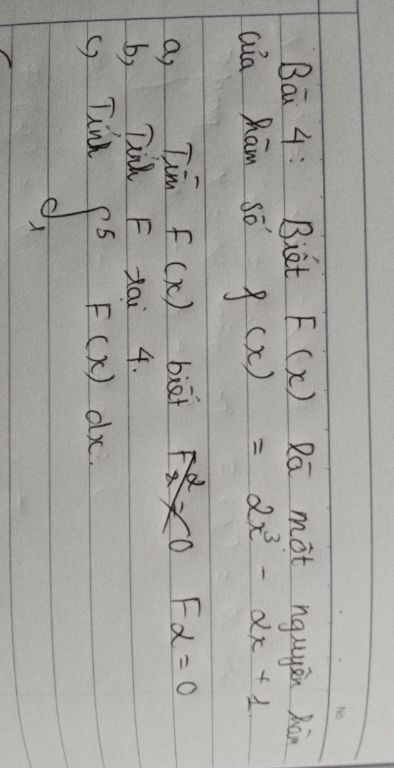 No.
Bài 4: Biết F(x) là một nguyên hàm
của hàm số f(x) = 2x³ - 2x + 1
a, Tìm F(x) biết F2 = 0
b, Tính F tại 4.
c, Tính ∫₁⁵ F(x) dx.